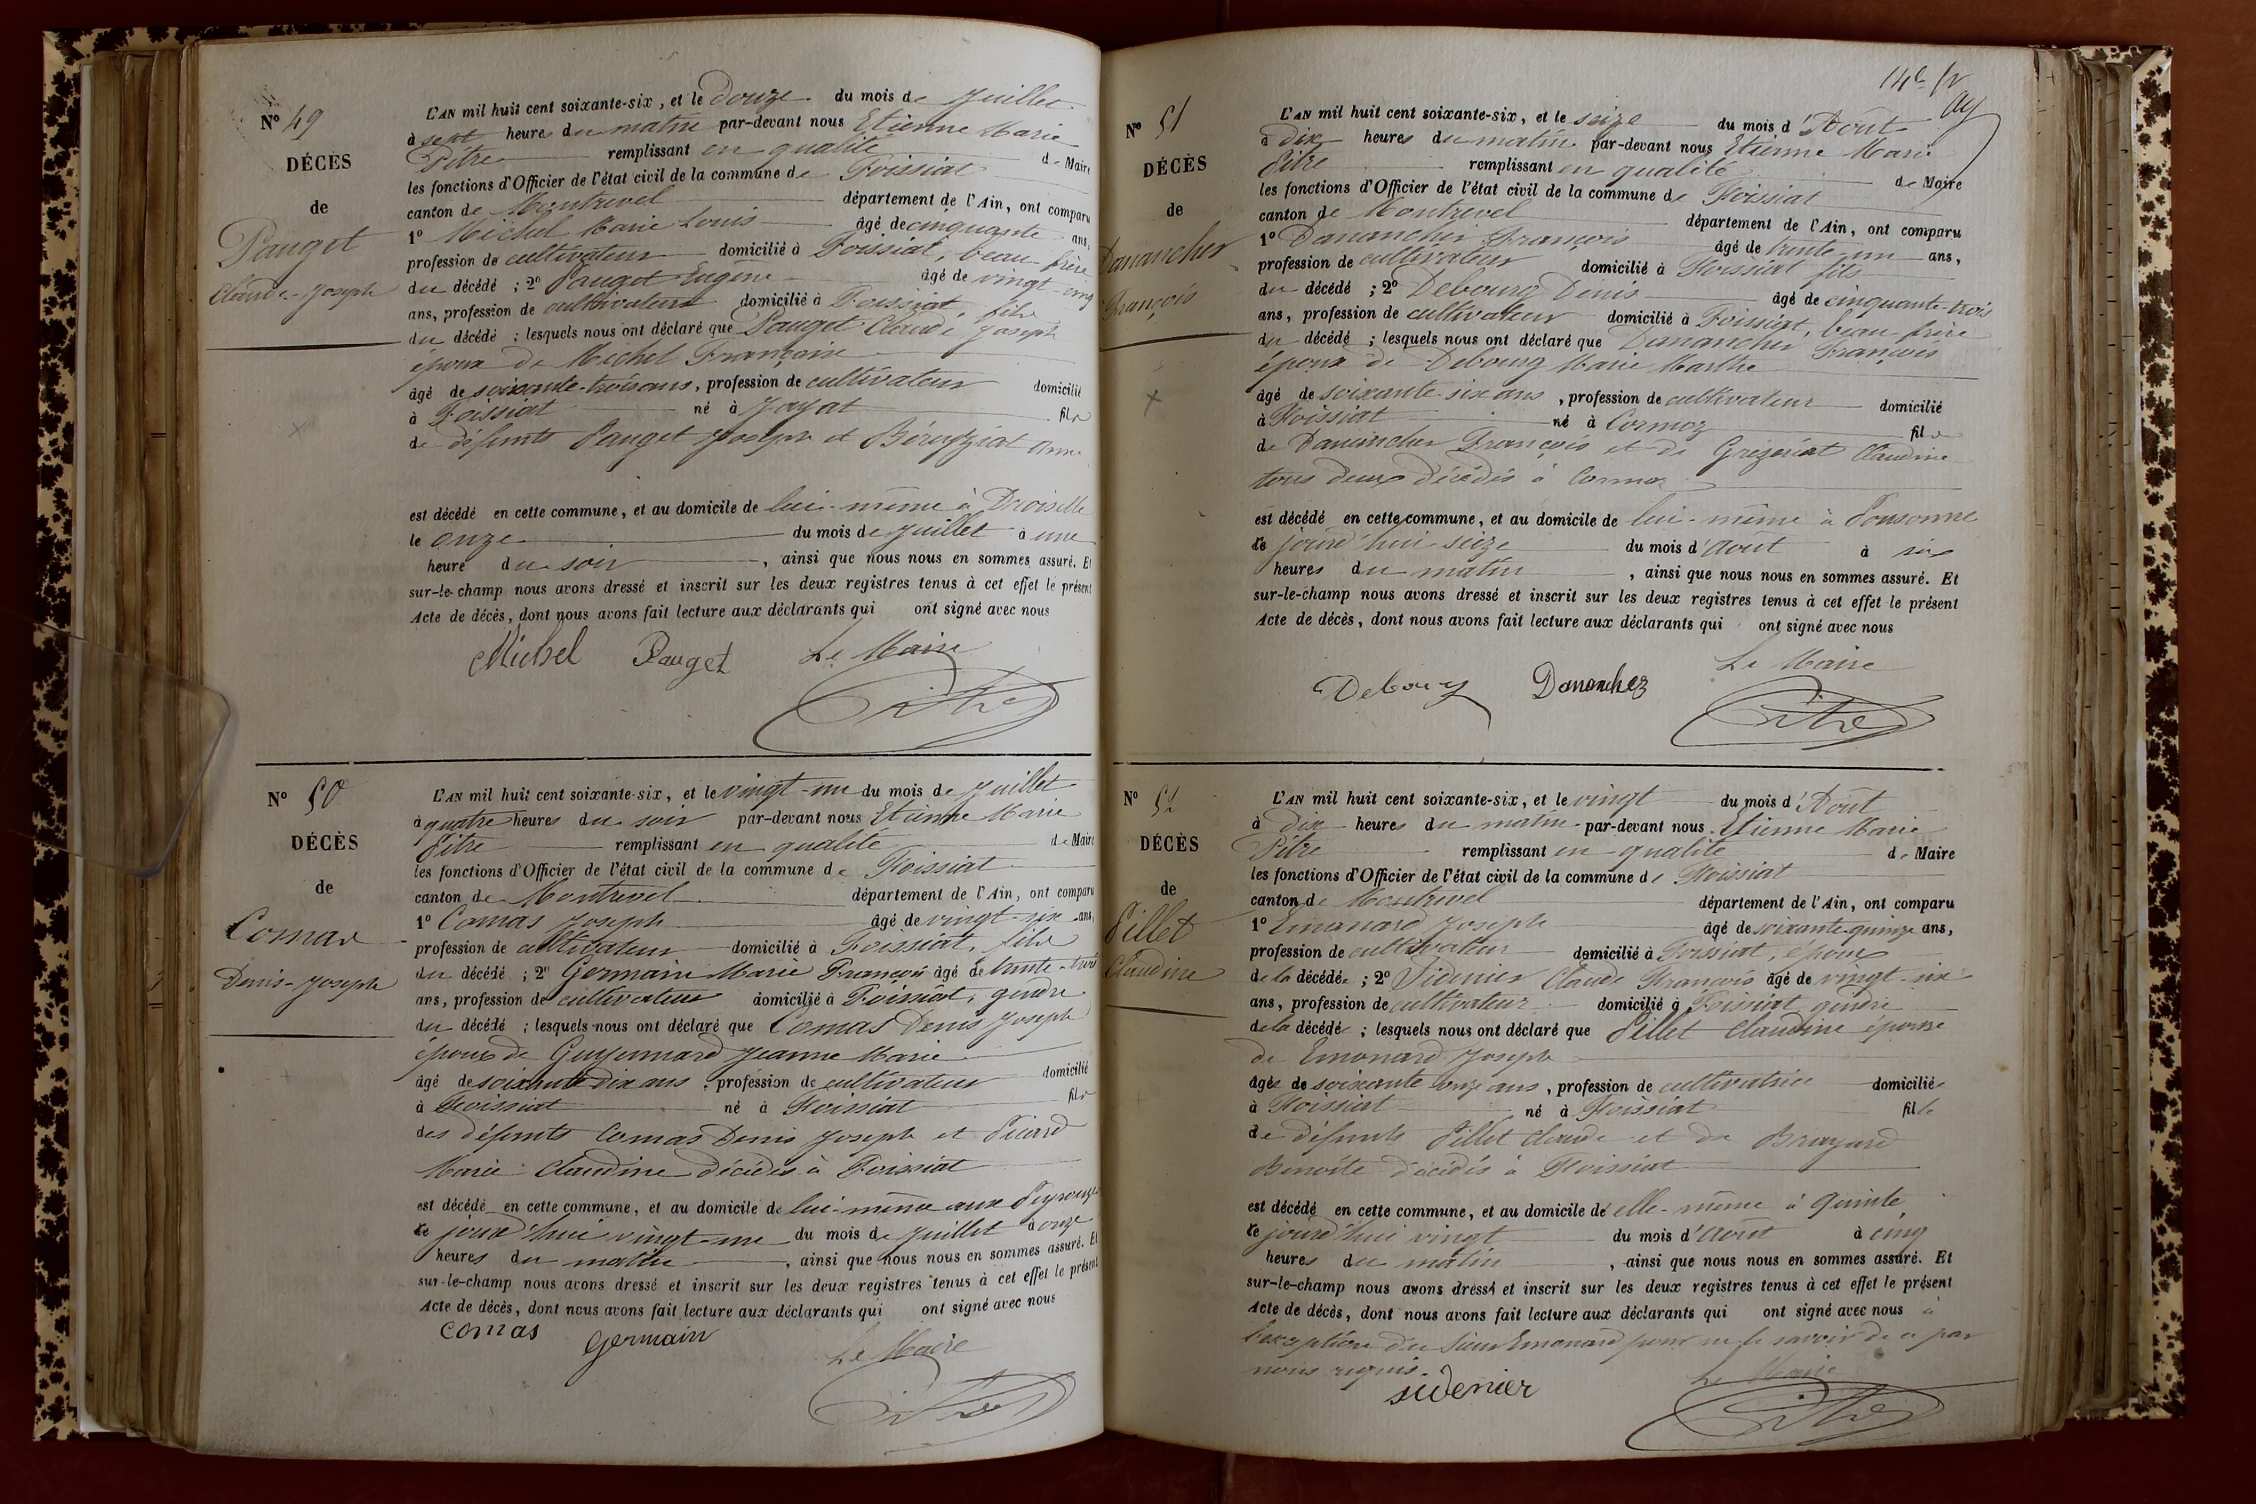 N° 49
DÉCÈS
de
Pauget
Claude-Joseph
L'AN mil huit cent soixante-six, et le douze du mois de Juillet
à sept heures du matin par-devant nous Etienne Marie
Pitre remplissant en qualité de Maire
les fonctions d'Officier de l'état civil de la commune de Foissiat
canton de Montrevel département de l'Ain, ont comparu
1° Michel Marie Louis âgé de cinquante ans,
profession de cultivateur domicilié à Foissiat, beau-frère
du décédé ; 2° Pauget Eugène âgé de vingt-cinq
ans, profession de cultivateur domicilié à Foissiat, fils
du décédé ; lesquels nous ont déclaré que Pauget Claude Joseph
époux de Michel Françoise
âgé de soixante-trois ans, profession de cultivateur domicilié
à Foissiat né à Jayat fils
de défunts Pauget Joseph et Béréyziat Anne
est décédé en cette commune, et au domicile de lui-même à Droiselle
le onze du mois de Juillet à une
heure du soir, ainsi que nous nous en sommes assuré. Et
sur-le-champ nous avons dressé et inscrit sur les deux registres tenus à cet effet le présent
Acte de décès, dont nous avons fait lecture aux déclarants qui ont signé avec nous
Michel Pauget Le Maire
Pitre
N° 50
DÉCÈS
de
Comas
Denis-Joseph
L'AN mil huit cent soixante-six, et le vingt-un du mois de Juillet
à quatre heures du soir par-devant nous Etienne Marie
Pitre remplissant en qualité de Maire
les fonctions d'Officier de l'état civil de la commune de Foissiat
canton de Montrevel département de l'Ain, ont comparu
1° Comas Joseph âgé de vingt-six ans,
profession de cultivateur domicilié à Foissiat, fils
du décédé ; 2° Germain Marie François âgé de trente-trois
ans, profession de cultivateur domicilié à Foissiat, gendre
du décédé ; lesquels nous ont déclaré que Comas Denis Joseph
époux de Guyennard Jeanne Marie
âgé de soixante dix ans, profession de cultivateur domicilié
à Foissiat né à Foissiat fils
des défunts Comas Denis Joseph et Picard
Marie Claudine décédés à Foissiat
est décédé en cette commune, et au domicile de lui-même aux
le jourd'hui vingt-un du mois de Juillet à onze
heures du matin, ainsi que nous nous en sommes assuré. Et
sur-le-champ nous avons dressé et inscrit sur les deux registres tenus à cet effet le présent
Acte de décès, dont nous avons fait lecture aux déclarants qui ont signé avec nous
comas germain Le Maire
Pitre
14e
N° 51
DÉCÈS
de
Danancher
François
L'AN mil huit cent soixante-six, et le seize du mois d'Août
à dix heures du matin par-devant nous Etienne Marie
Pitre remplissant en qualité de Maire
les fonctions d'Officier de l'état civil de la commune de Foissiat
canton de Montrevel département de l'Ain, ont comparu
1° Danancher François âgé de trente un ans,
profession de cultivateur domicilié à Foissiat fils
du décédé ; 2° Debourg Denis âgé de cinquante-trois
ans, profession de cultivateur domicilié à Foissiat, beau-frère
du décédé ; lesquels nous ont déclaré que Danancher François
époux de Debourg Marie Marthe
âgé de soixante six ans, profession de cultivateur domicilié
à Foissiat né à Cormoz fils
de Danancher François et de Claudine
tous deux décédés à Cormoz
est décédé en cette commune, et au domicile de lui-même à
le jourd'hui seize du mois d'août à six
heures du matin, ainsi que nous nous en sommes assuré. Et
sur-le-champ nous avons dressé et inscrit sur les deux registres tenus à cet effet le présent
Acte de décès, dont nous avons fait lecture aux déclarants qui ont signé avec nous
Le Maire
Debourg Dananchez Pitre
N° 52
DÉCÈS
de
Pillet
Claudine
L'AN mil huit cent soixante-six, et le vingt du mois d'Août
à dix heures du matin par-devant nous Etienne Marie
Pitre remplissant en qualité de Maire
les fonctions d'Officier de l'état civil de la commune de Foissiat
canton de Montrevel département de l'Ain, ont comparu
1° Emonard Joseph âgé de soixante-quinze ans,
profession de cultivateur domicilié à Foissiat, époux
de la décédée ; 2° Sidenier Claude François âgé de vingt-six
ans, profession de cultivateur domicilié à Foissiat gendre
de la décédée ; lesquels nous ont déclaré que Pillet Claudine épouse
de Emonard Joseph
âgée de soixante onze ans, profession de cultivatrice domiciliée
à Foissiat né à Foissiat fille
de défunts Pillet Claude et de Brayard
Benoîte décédés à Foissiat
est décédé en cette commune, et au domicile de elle-même à Quinte
le jourd'hui vingt du mois d'août à cinq
heures du matin, ainsi que nous nous en sommes assuré. Et
sur-le-champ nous avons dressé et inscrit sur les deux registres tenus à cet effet le présent
Acte de décès, dont nous avons fait lecture aux déclarants qui ont signé avec nous à
l'exception du sieur Emonard pour ne le savoir de ce par
nous requis. Le Maire
sidenier Pitre